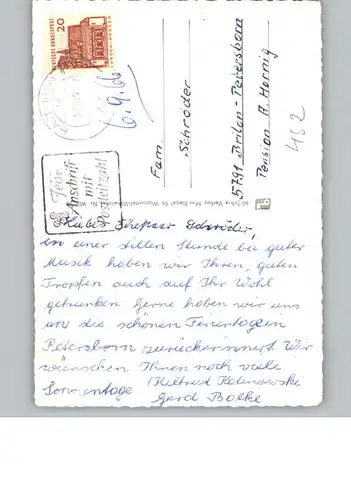 20
DEUTSCHE BUNDESPOST
6.9.66
Jede
Anschrift
mit
Postleitzahl
Fam.
Schröder
5791 Brilon-Petersborn
Pension A. Hornig
482
Liebes Ehepaar Schröder,
in einer stillen Stunde bei guter
Musik haben wir Ihren, guten
Tropfen auch auf Ihr Wohl
getrunken Gerne haben wir uns
uns die schönen Ferientage in
Petersborn zurückerinnert. Wir
wünschen Ihnen noch viele
Sonnentage
Gerd Balke